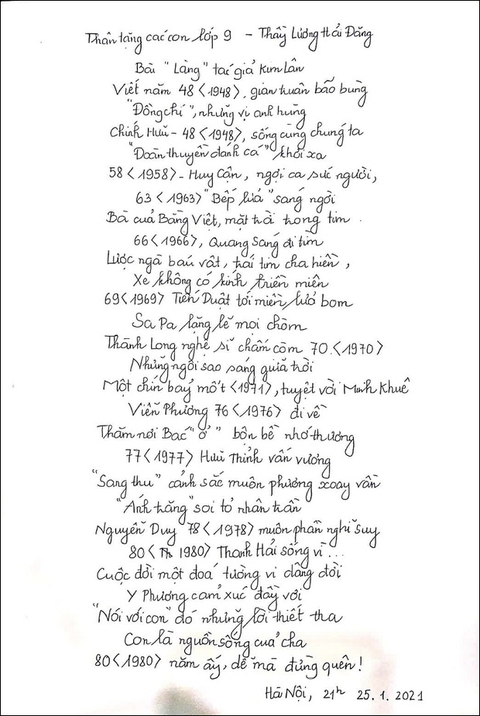 Thân tặng các con lớp 9 - Thầy Lương Hải Đăng
Bài "Làng" tác giả Kim Lân
Viết năm 48 <1948>, gian truân bão bùng
"Đồng chí", những vị anh hùng
Chính Hữu - 48 <1948>, sống cùng chúng ta
"Đoàn thuyền đánh cá" khơi xa
58 <1958> - Huy Cận, ngợi ca sức người,
63 <1963> "Bếp lửa" sáng ngời
Bà của Bằng Việt, mặt trời trong tim
66 <1966>, Quang Sáng đi tìm
Lược ngà báu vật, trái tim cha hiền,
Xe không có kính triền miên
69 <1969> Tiến Duật tới miền lửa bom
Sa Pa lặng lẽ mọi chòm
Thành Long nghệ sĩ chấm còm 70 <1970>
Những ngôi sao sáng giữa trời
Một chín bảy mốt <1971>, tuyệt vời Minh Khuê
Viễn Phương 76 <1976> đi về
Thăm nơi Bác "ở" bộn bề nhớ thương
77 <1977> Hữu Thỉnh vấn vương
"Sang thu" cảnh sắc muôn phương xoay vần
"Ánh trăng" soi tỏ nhân trần
Nguyễn Duy 78 <1978> muôn phần nghĩ suy
80 < 1980> Thanh Hải sống vì ...
Cuộc đời một đoá tường vi dâng đời
Y Phương cảm xúc đầy vơi
"Nói với con" đó những lời thiết tha
Con là nguồn sống của cha
80 <1980> năm ấy, dễ mà đừng quên!
Hà Nội, 21h 25.1.2021